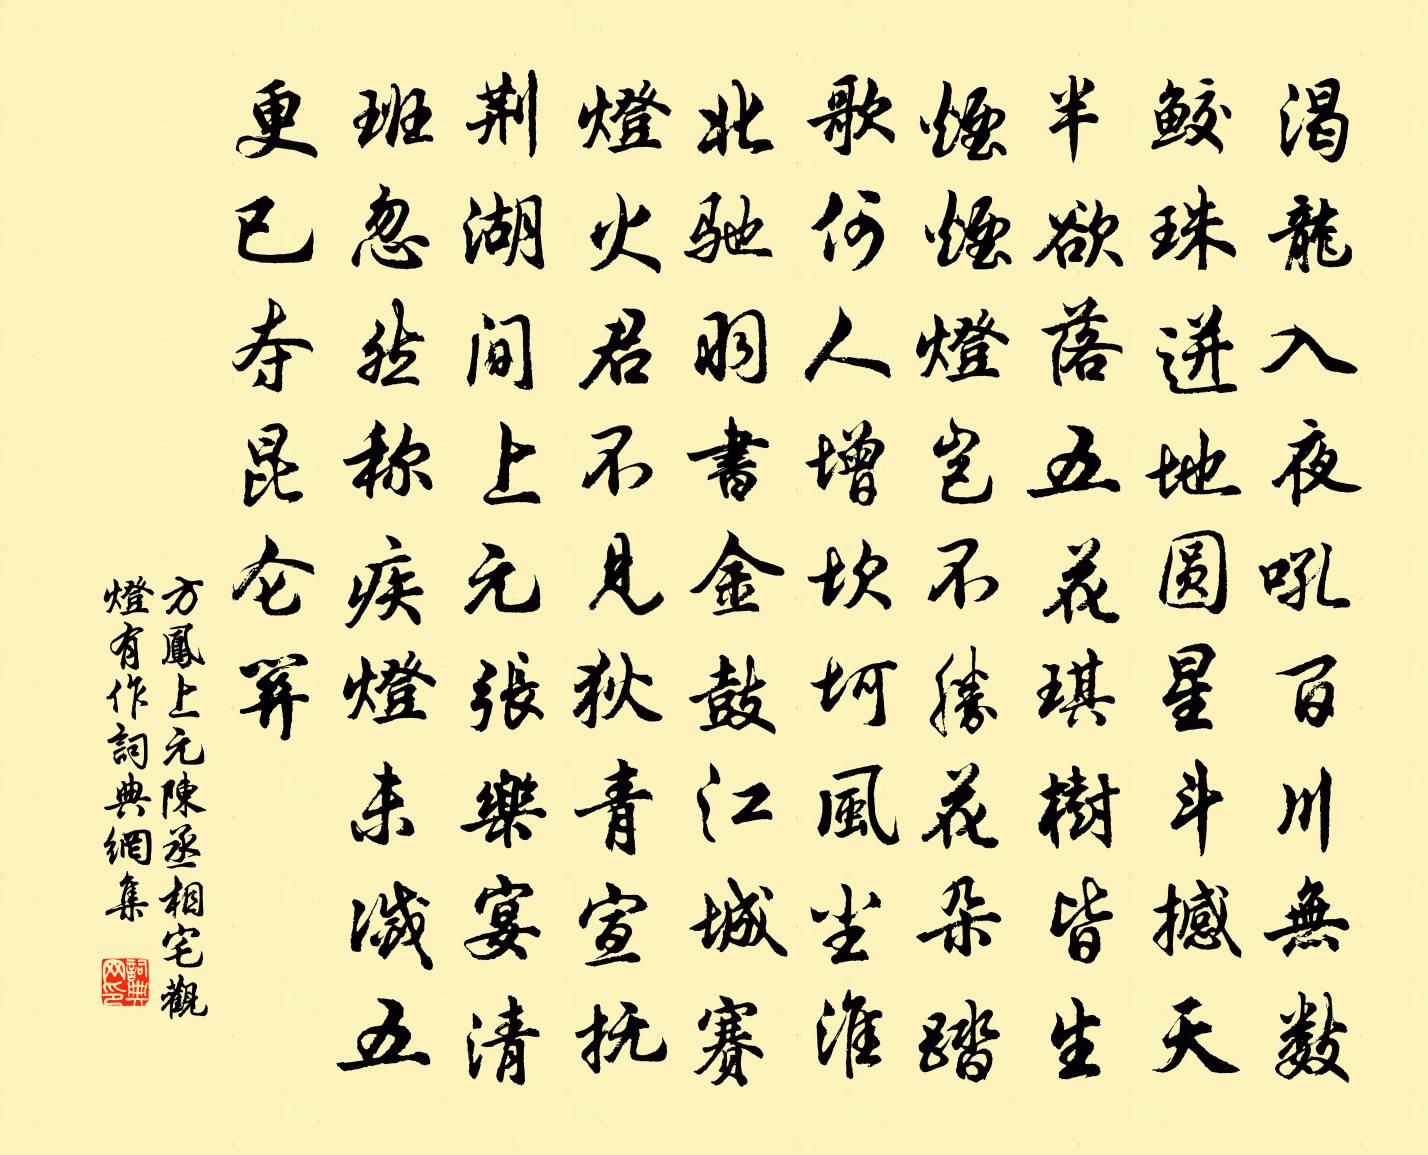 渴龍入夜吼百川無数
鮫珠迸地圆星斗撼天
半欲落五花琪樹皆生
煙煙燈岂不勝花朵踏
歌何人增坎坷風尘淮
北馳羽書金鼓江城賽
燈火君不見狄青宣抚
荆湖間上元張樂宴清
班忽然称疾燈未滅五
更已夺昆仑关
方鳳上元陳丞相宅觀
燈有作詞典網集
詞典
网印